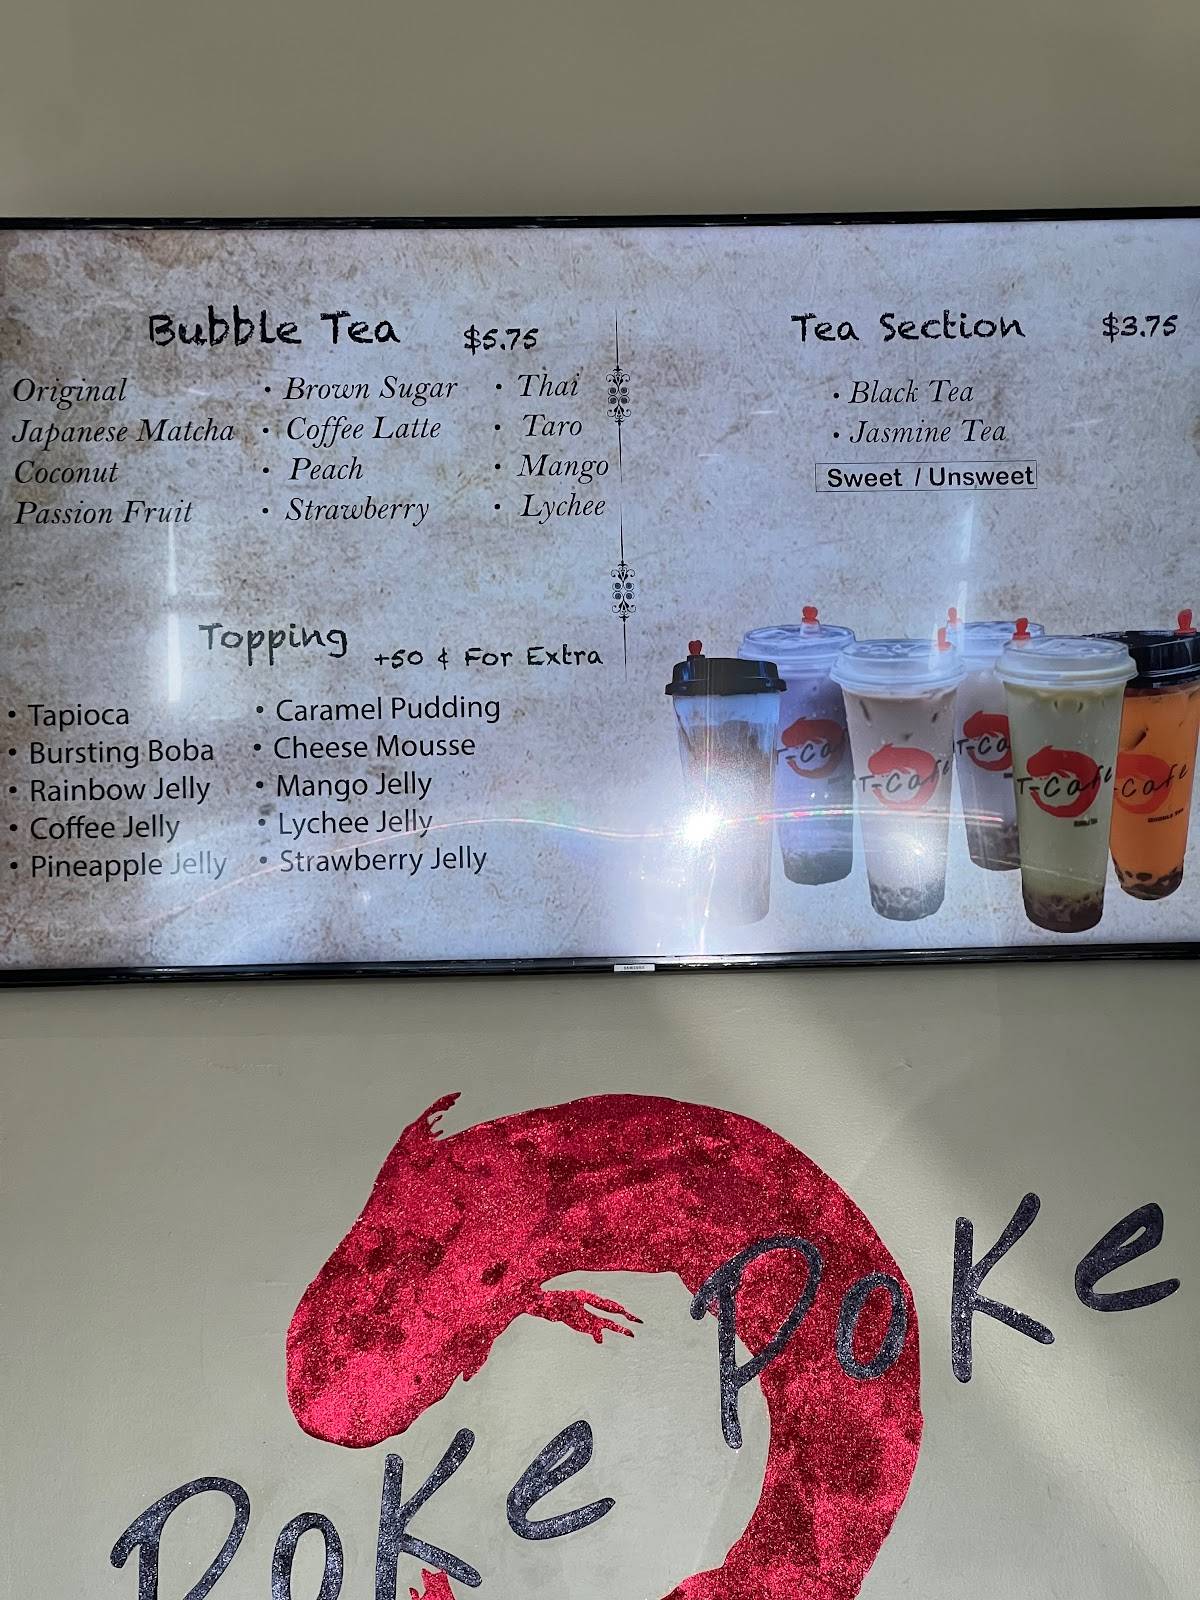 Bubble Tea $5.75
Original
Japanese Matcha
Coconut
Passion Fruit
• Brown Sugar
• Coffee Latte
• Peach
• Strawberry
• Thai
• Taro
• Mango
• Lychee
Topping +50 ¢ For Extra
• Tapioca
• Bursting Boba
• Rainbow Jelly
• Coffee Jelly
• Pineapple Jelly
• Caramel Pudding
• Cheese Mousse
• Mango Jelly
• Lychee Jelly
• Strawberry Jelly
Tea Section $3.75
• Black Tea
• Jasmine Tea
Sweet / Unsweet
T-Ca
T-Cafe
T-Ca
T-Cafe
-Cafe
BUBBLE TEA
SAMSUNG
Poke
Poke